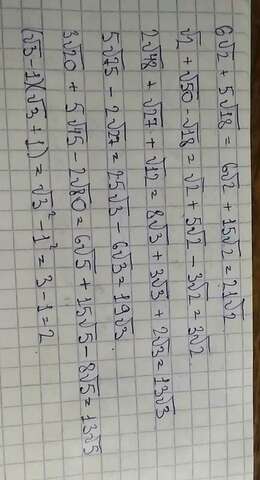 6√2 + 5√18 = 6√2 + 15√2 = 21√2
√2 + √50 - √18 = √2 + 5√2 - 3√2 = 3√2
2√48 + √27 + √12 = 8√3 + 3√3 + 2√3 = 13√3
5√75 - 2√27 = 25√3 - 6√3 = 19√3
3√20 + 5√45 - 2√80 = 6√5 + 15√5 - 8√5 = 13√5
(√3 - 1)(√3 + 1) = √3² - 1² = 3 - 1 = 2